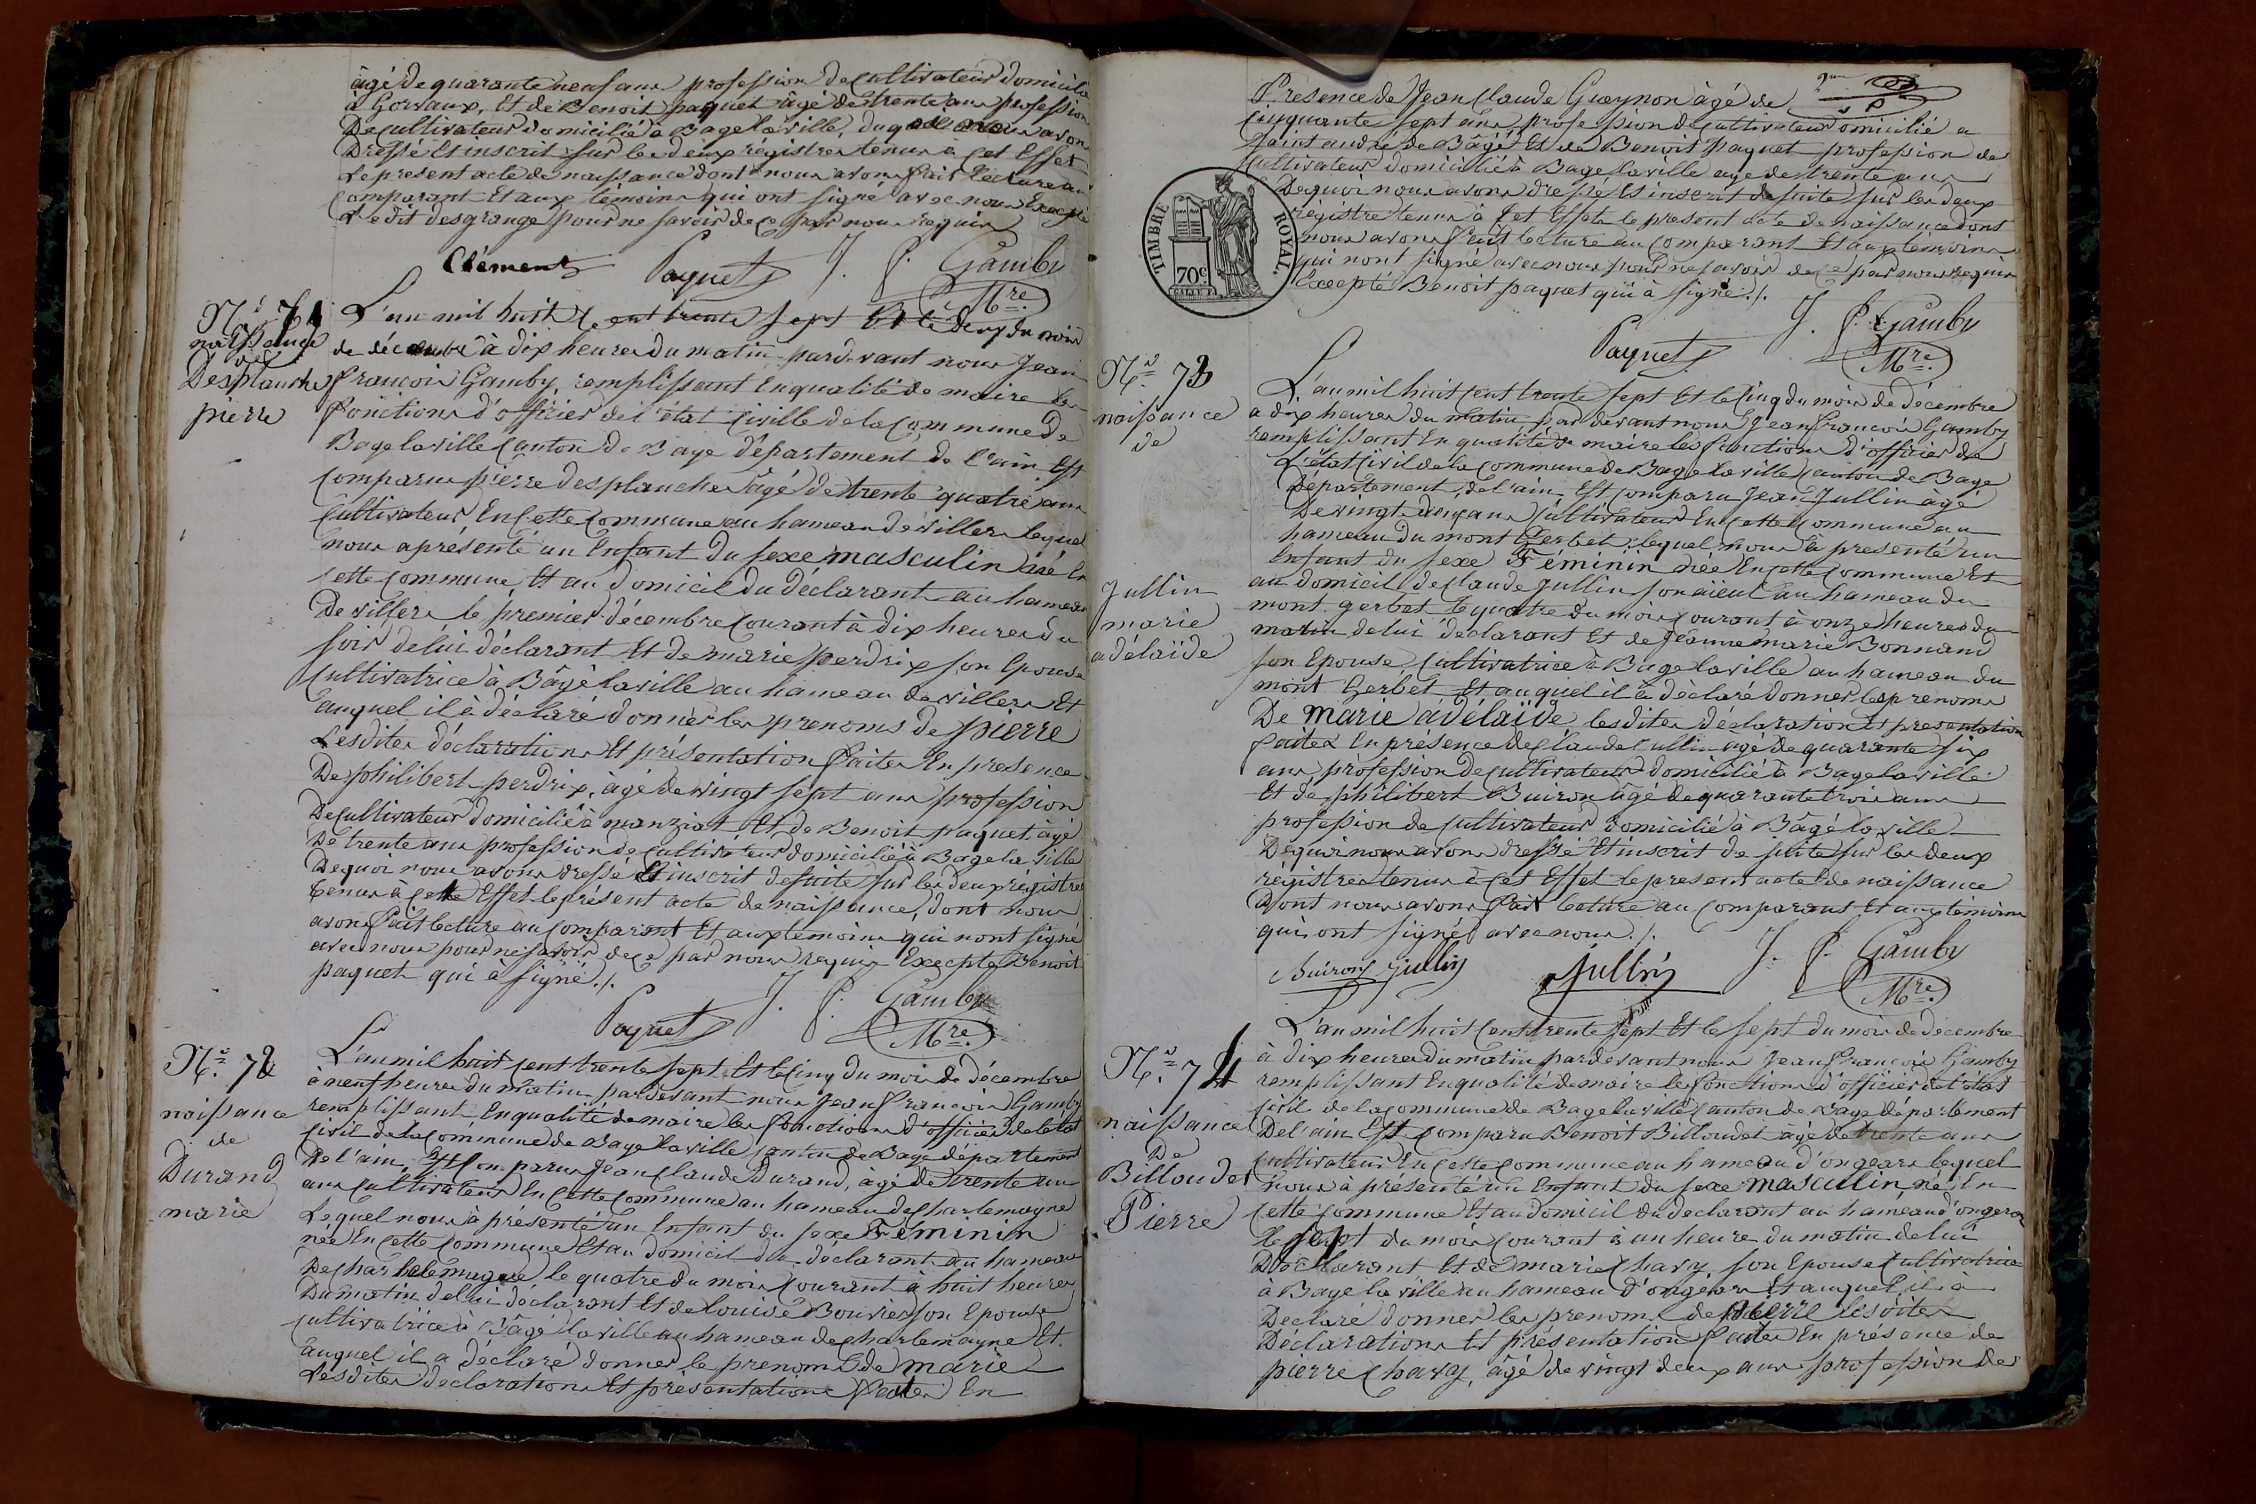 âgé de quarante neuf ans profession de cultivateur domicilié
à Gorvaux, Et de Benoit paquet âgé de trente ans profession
De cultivateur domicilié à Bage la ville, duquel nous avons
Dressé Et inscrit sur les deux régistres tenus à cet Effet
Le present acte de naissance dont nous avons fait lecture au
comparant Et aux témoins qui ont signé avec nous Excepté
Ledit desgrange pour ne savoir de ce par nous requis
Clément Paquet J. f. Gamby
Mre
No 71
naissance
de
Desplanche
pierre
L'an mil huit cent trente sept Et le deux du mois
de décembre à dix heures du matin pardevant nous Jean
francois Gamby remplissant En qualité de maire les
fonctions d'officier de l'état civille de la commune de
Bage la ville canton de Bage département de l'ain Est
comparu pierre desplanches âgé de trente quatre ans
cultivateur En cette commune au hameau de villers lequel
nous a présenté un Enfant du sexe masculin né En
cette commune Et au domicil du déclarant au hameau
De villers le premier décembre courant à dix heures du
soir de lui déclarant Et de marie perdrix son Epouse
cultivatrice à Bâgé la ville au hameau de villers Et
auquel il à déclaré donner les prenoms de pierre
Lesdites déclarations Et présentation faites En presence
De philibert perdrix, âgé de vingt sept ans profession
De cultivateur domicilié à manziat Et de Benoit paquet âgé
De trente ans profession de cultivateur domicilié à Bage la ville
De quoi nous avons dressé Et inscrit de suite sur les deux régistres
tenus à cet Effet le présent acte de naissance, dont nous
avons fait lecture au comparant Et aux temoins qui nont signé
avec nous pour ne savoir de ce par nous requis Excepte Benoit
paquet qui à signé ./.
Paquet J. f. Gamby
Mre
No 72
naissance
de
Durand
marie
L'an mil huit cent trente sept Et le cinq du mois de décembre
à neuf heures du matin pardevant nous Jean francois Gamby
remplissant En qualité de maire les fonctions d'officier de l'état
civil de la commune de Bage la ville canton de Bage département
De l'ain Est comparu Jean Claude Durand, âgé de trente un
ans cultivateur En cette commune au hameau de charlemagne
Lequel nous à présenté un Enfant du sexe Féminin
née En cette commune Et au domicil du déclarant au hameau
De charlelemagne le quatre du mois courant à huit heures
Du matin de lui déclarant Et de louise Bouvier son Epouse
cultivatrice à Bâgé la ville au hameau de charlemagne Et
auquel il a déclaré donner le prenoms de marie
Lesdites declarations Et présentations faites En
2me
Présence de Jean Claude Guaynon âgé de
cinquante sept ans profession de cultivateur domicilié a
saint andré de Bâgé Et de Benoit Paquet profession de
cultivateur domicilié à Bage la ville age de trente ans
De quoi nous avons dressé Et inscrit de suite sur les deux
régistre tenus à cet Effet le present acte de naissance dont
nous avons fait lecture au comparant Et aux témoins
qui nont signé avec nous pour ne savoir de ce par nous requis
Excepté Benoit paquet qui à signé ./.
TIMBRE ROYAL.
70c
Paquet J. f. Gamby
Mre
No 73
naissance
de
Jullin
marie
adélaïde
L'an mil huit cent trente sept Et le cinq du mois de décembre
a dix heures du matin par devant nous Jean francois Gamby
remplissant En qualité de maire les fonctions d'officier de
L'état civil de la commune de Bage la ville canton de Bage
Département de l'ain Est comparu Jean Jullin âgé
De vingt cinq ans cultivateur En cette commune au
hameau du mont Gerbet lequel nous à presenté un
Enfant du sexe Féminin née En cette commune Et
au domicil de claude Jullin son aieul au hameau du
mont gerbet le quatre du mois courant à onze heures du
matin de lui déclarant Et de Jeanne marie Bonnand
son Epouse cultivatrice à Bage la ville au hameau du
mont Gerbet Et auquel il à déclaré donner les prenoms
De marie adélaïde lesdites déclaration Et presentation
faites En présence de claude Jullin âgé de quarante six
ans profession de cultivateur domicilié à Bage la ville
Et de philibert Buiron âgé de quarante trois ans
profession de cultivateur domicilié à Bâgé la ville
De quoi nous avons dressé Et inscrit de suite sur les deux
régistres tenus à cet Effet le present acte de naissance
Dont nous avons fait lecture au comparans Et aux témoins
qui ont signés avec nous ./.
Buiron Jullin Jullin J. f. Gamby
Mre
No 74
naissance
De
Billoudet
Pierre
L'an mil huit cent trente sept Et le sept du mois de decembre
à dix heures du matin pardevant nous Jean francois Gamby
remplissant En qualité de maire les fonctions d'officier de l'état
civil de la commune de Bage la ville canton de Bage département
De l'ain Est comparu Benoit Billoudet âgé de trente ans
cultivateur En cette commune au hameau d'ongears lequel
nous à présenté un Enfant du sexe masculin né En
cette commune Et au domicil du declarant au hameau d'ongears
le sept du mois courant à un heure du matin de lui
Declarant Et de marie Chavy son Epouse cultivatrice
à Bage la ville au hameau d'ongears Et auquel il à
Declaré donner les prenoms de pierre lesdites
Déclarations Et présentation faites En présence de
pierre Chavy, âgé de vingt deux ans profession de